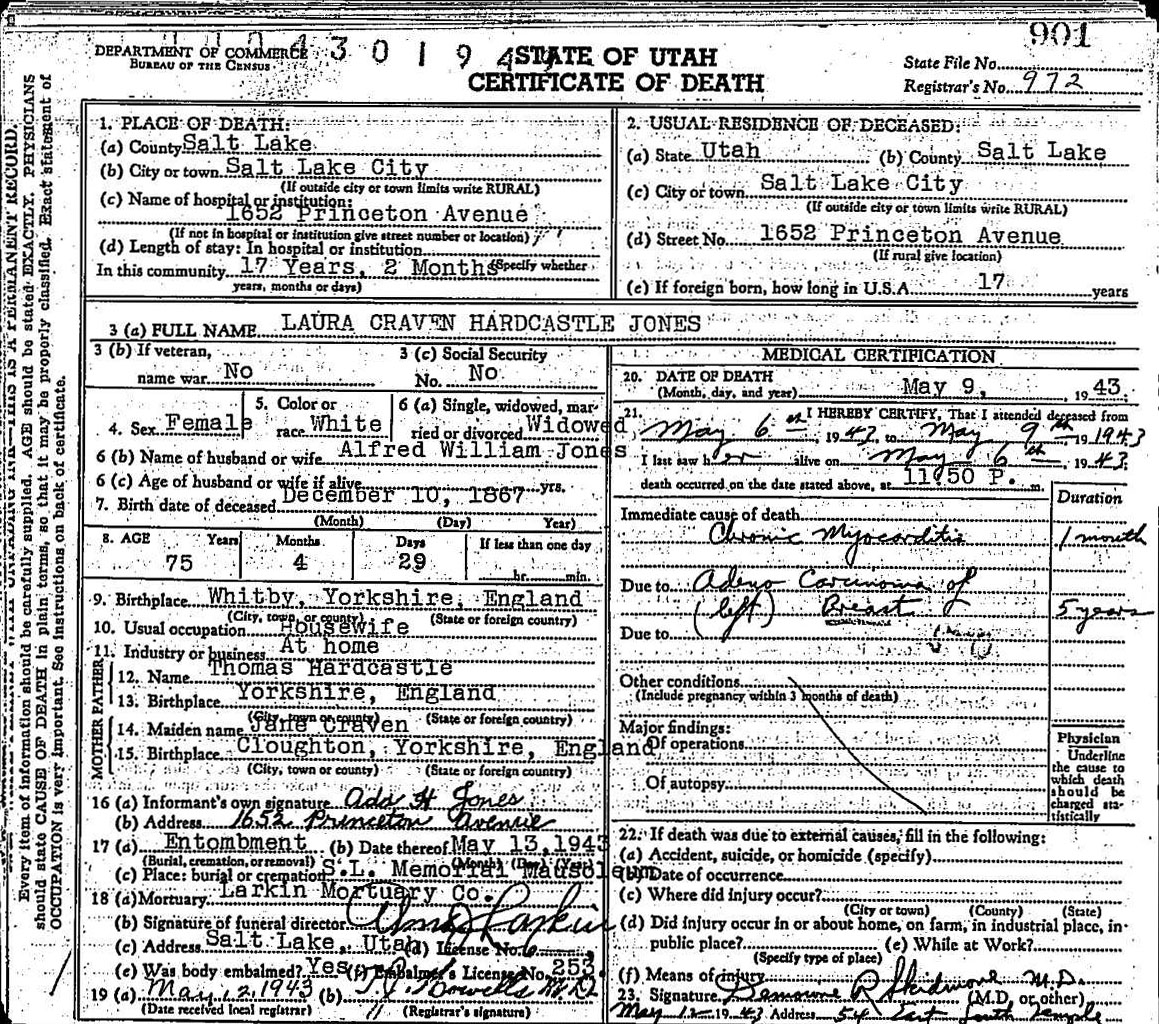 901
DEPARTMENT OF COMMERCE
BUREAU OF THE CENSUS
STATE OF UTAH
CERTIFICATE OF DEATH
State File No.
Registrar's No. 972
Every item of information should be carefully supplied. AGE should be stated EXACTLY. PHYSICIANS
should state CAUSE OF DEATH in plain terms, so that it may be properly classified. Exact statement of
OCCUPATION is very important. See instructions on back of certificate.
1. PLACE OF DEATH:
(a) County Salt Lake
(b) City or town Salt Lake City
(If outside city or town limits write RURAL)
(c) Name of hospital or institution:
1652 Princeton Avenue
(If not in hospital or institution give street number or location)
(d) Length of stay: In hospital or institution
In this community 17 Years, 2 Months (Specify whether
years, months or days)
2. USUAL RESIDENCE OF DECEASED:
(a) State Utah (b) County Salt Lake
(c) City or town Salt Lake City
(If outside city or town limits write RURAL)
(d) Street No. 1652 Princeton Avenue
(If rural give location)
(e) If foreign born, how long in U.S.A. 17 years
3 (a) FULL NAME LAURA CRAVEN HARDCASTLE JONES
3 (b) If veteran,
name war No
3 (c) Social Security
No. No
4. Sex Female
5. Color or
race White
6 (a) Single, widowed, mar-
ried or divorced Widowed
6 (b) Name of husband or wife Alfred William Jones
6 (c) Age of husband or wife if alive yrs.
7. Birth date of deceased December 10, 1867
(Month) (Day) Year)
8. AGE Years Months Days If less than one day
75 4 29 hr. min.
9. Birthplace Whitby, Yorkshire, England
(City, town, or county) (State or foreign country)
10. Usual occupation Housewife
11. Industry or business At home
FATHER
12. Name Thomas Hardcastle
13. Birthplace Yorkshire, England
(City, town or county) (State or foreign country)
MOTHER
14. Maiden name Jane Craven
15. Birthplace Cloughton, Yorkshire, England
(City, town or county) (State or foreign country)
16 (a) Informant's own signature Ada H Jones
(b) Address 1652 Princeton Avenue
17 (a) Entombment (b) Date thereof May 13, 1943
(Burial, cremation, or removal) (Month) (Day) (Year)
(c) Place: burial or cremation S.L. Memorial Mausoleum
18 (a) Mortuary Larkin Mortuary Co.
(b) Signature of funeral director Larkin
(c) Address Salt Lake, Utah (d) License No. 6
(e) Was body embalmed? Yes (f) Embalmer's License No. 253
19 (a) May 12, 1943 (b) T.J. Howells M.D.
(Date received local registrar) (Registrar's signature)
MEDICAL CERTIFICATION
20. DATE OF DEATH
(Month, day, and year) May 9, 1943
21. I HEREBY CERTIFY, That I attended deceased from
May 6th, 1943, to May 9th 19 1943
I last saw her alive on May 6th, 1943;
death occurred on the date stated above, at 11:50 P. m.
Duration
Immediate cause of death
Chronic Myocarditis 1 month
Due to Adeno Carcinoma of
(left) Breast 5 years
Due to
Other conditions
(Include pregnancy within 3 months of death)
Major findings:
Of operations
Of autopsy
Physician
Underline
the cause to
which death
should be
charged sta-
tistically
22. If death was due to external causes, fill in the following:
(a) Accident, suicide, or homicide (specify)
(b) Date of occurrence
(c) Where did injury occur?
(City or town) (County) (State)
(d) Did injury occur in or about home, on farm, in industrial place, in-
public place? (e) While at Work?
(Specify type of place)
(f) Means of injury
23. Signature Skidmore M.D. (M.D. or other)
May 12 1943 Address 54 East South Temple